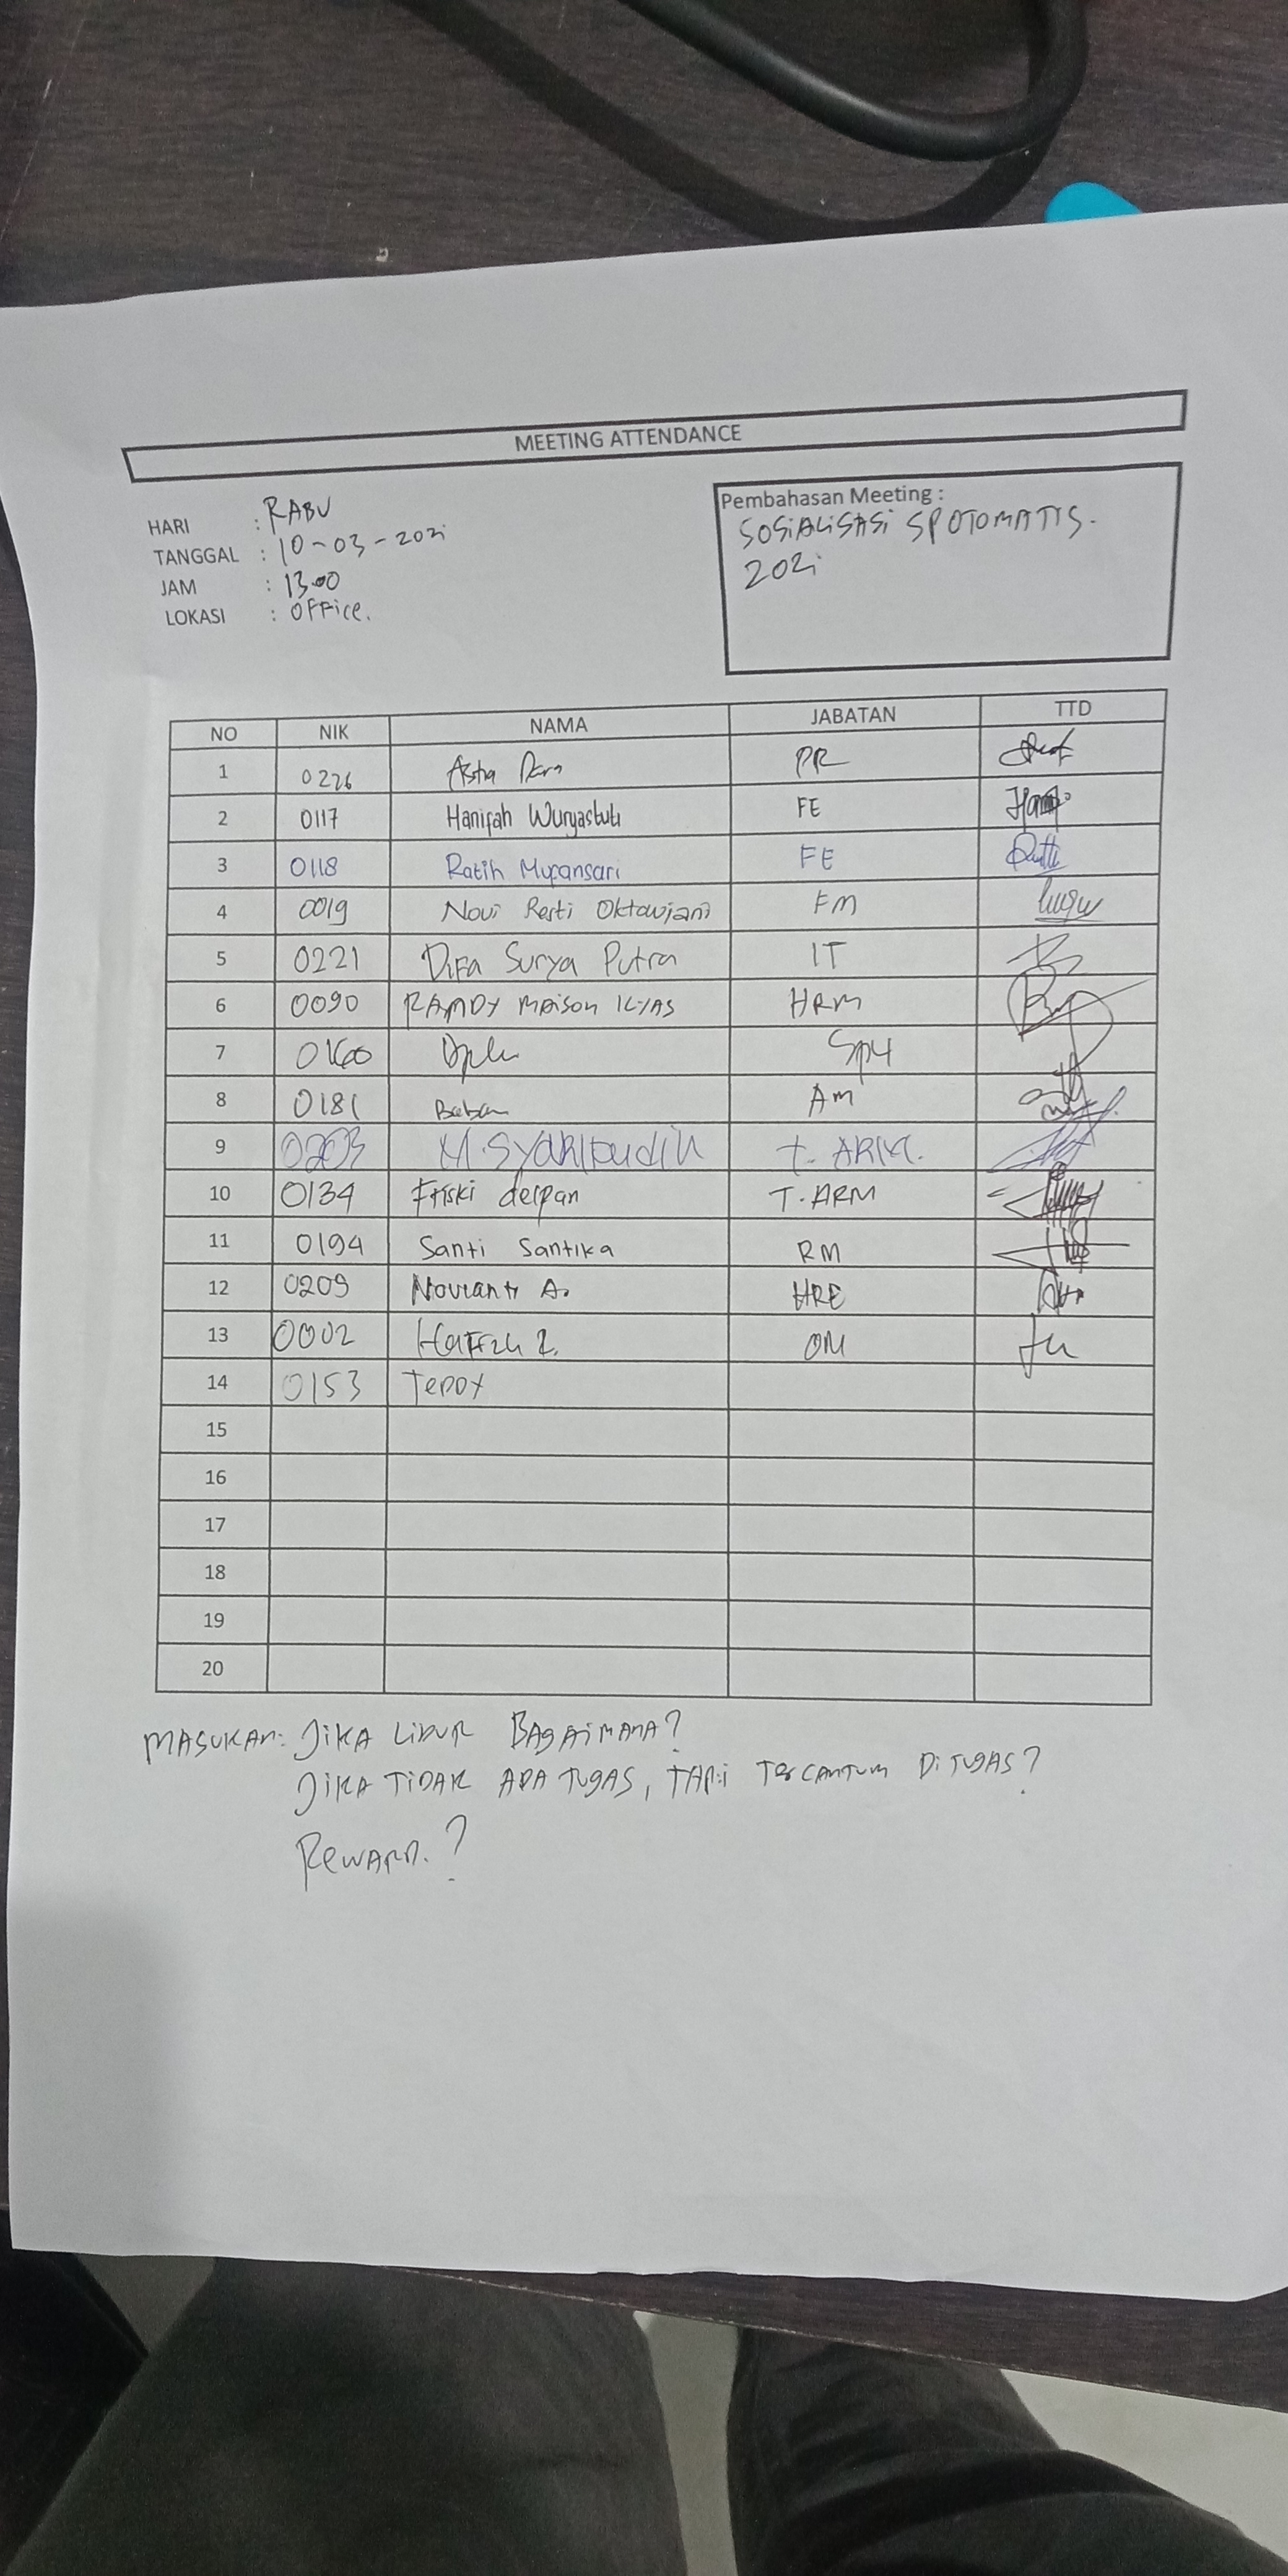 MEETING ATTENDANCE
HARI : RABU
TANGGAL : 10-03-2021
JAM : 13.00
LOKASI : OFFice.
Pembahasan Meeting :
SOSiALiSASi SPOTOMATIS.
2021
NO NIK NAMA JABATAN TTD
1 0226 Astia PR
2 0117 Hanifah Wuryastuti FE
3 0118 Ratih Mupansari FE
4 0019 Novi Resti Oktaviani FM
5 0221 DiFa Surya Putra IT
6 0090 RAMDY MEISON ILYAS HRM
7 0160
8 0181 Baban AM
9 0203 M.SyARIPudin t. ARM.
10 0134 Friski derpan T.ARM
11 0194 Santi Santika RM
12 0209 Novianti A. HRE
13 0002 OM
14 0153 TEDDY
15
16
17
18
19
20
MASUKAN: JiKA LiBUR BAGAiMANA?
JiKA TiDAK ADA TUGAS, TAPi TERCANTUM Di TUGAS?
REWARD.?